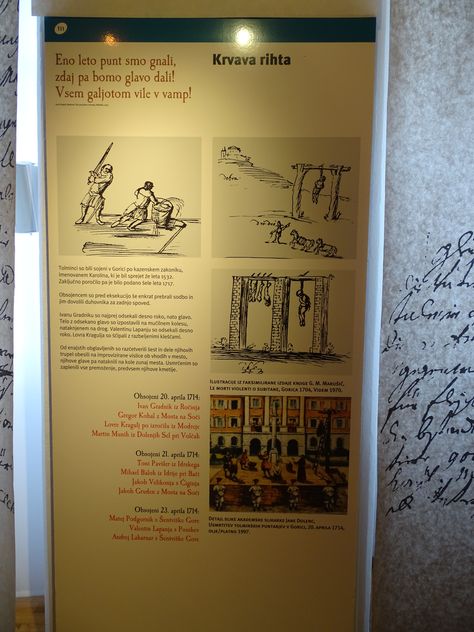 111
Eno leto punt smo gnali,
zdaj pa bomo glavo dali!
Vsem galjotom vile v vamp!
Krvava rihta
Tolminci so bili sojeni v Gorici po kazenskem zakoniku,
imenovanem Karolina, ki je bil sprejet že leta 1532.
Zaključno poročilo pa je bilo podano šele leta 1717.
Obsojencem so pred eksekucijo še enkrat prebrali sodbo in
jim dovolili duhovnika za zadnjo spoved.
Ivanu Gradniku so najprej odsekali desno roko, nato glavo.
Telo z odsekano glavo so izpostavili na mučilnem kolesu,
nataknjenem na drog. Valentinu Lapanju so odsekali desno
roko. Lovra Kragulja so ščipali z razbeljenimi kleščami.
Od enajstih obglavljenih so razčetverili šest in dele njihovih
trupel obesili na improvizirane vislice ob vhodih v mesto,
njihove glave pa nataknili na kole zunaj mesta. Usmrčenim so
zaplenili vse premoženje, predvsem njihove kmetije.
Ilustracije iz faksimilirane izdaje knjige G. M. Marušič,
Le morti violenti o subitane, Gorica 1704, Videm 1970.
Obsojeni 20. aprila 1714:
Ivan Gradnik iz Ročinja
Gregor Kobal z Mosta na Soči
Lovre Kragulj po izročilu iz Modreje
Martin Munih iz Dolenjih Sel pri Volčah
Obsojeni 21. aprila 1714:
Toni Pavšler iz Idrskega
Mihael Baloh iz Idrije pri Bači
Jakob Velikonja s Čiginja
Jakob Grudex z Mosta na Soči
Obsojeni 23. aprila 1714:
Matej Podgornik s Šentviške Gore
Valentin Lapanja s Ponikev
Andrej Laharnar s Šentviške Gore
Detajl slike akademske slikarke Jane Dolenc,
Usmrtitev tolminskih puntarjev v Gorici, 20. aprila 1714,
olje/platno 1997.